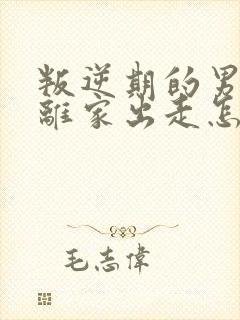 叛逆期的男
離家出走怎
毛志偉